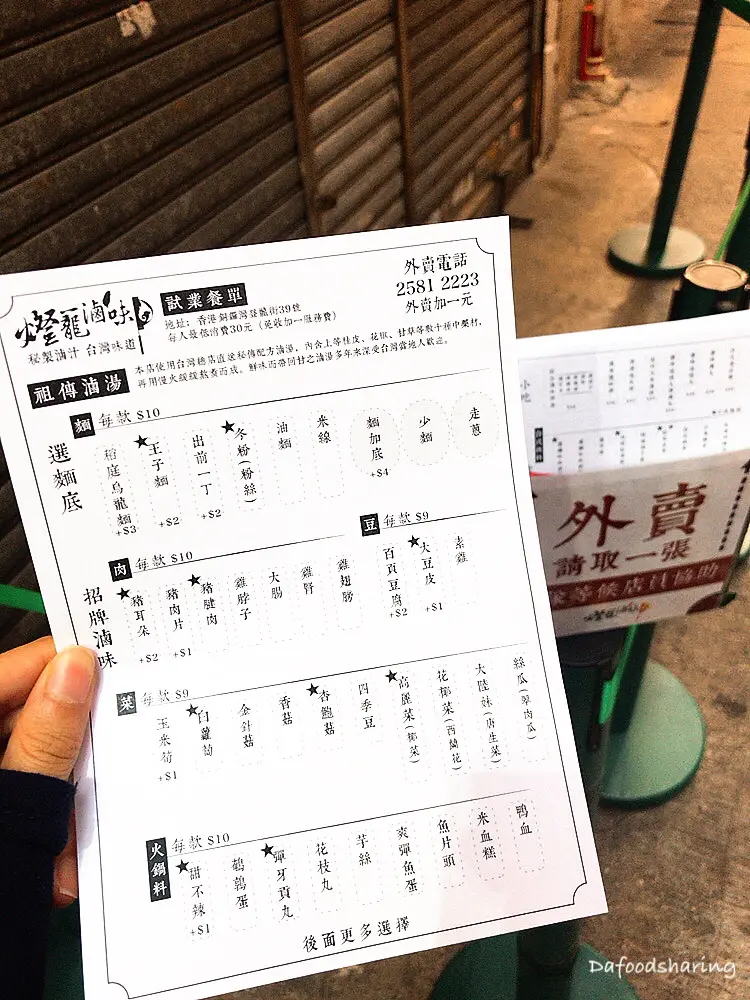 燈籠滷味
秘製滷汁 台灣味道
試業餐單
地址：香港銅鑼灣登龍街39號
每人最低消費30元（免收加一服務費）
外賣電話
2581 2223
外賣加一元
祖傳滷湯
本店使用台灣總店直送秘傳配方滷湯，內含上等桂皮、花椒、甘草等數十種中藥材，
再用慢火緩緩熬煮而成。鮮味而帶回甘之滷湯多年來深受台灣當地人歡迎。
選麵底
麵 每款 $10
稻庭烏龍麵 +$3
★王子麵 +$2
出前一丁 +$2
★冬粉（粉絲）
油麵
米線
麵加底 +$4
少麵
走蔥
招牌滷味
肉 每款 $10
★豬耳朵 +$2
豬肉片 +$1
★豬腱肉
雞脖子
大腸
雞腎
雞翅膀
豆 每款 $9
百頁豆腐 +$2
★大豆皮 +$1
素雞
菜 每款 $9
玉米筍 +$1
★白蘿蔔
金針菇
香菇
★杏鮑菇
四季豆
★高麗菜（椰菜）
花椰菜（西蘭花）
大陸妹（唐生菜）
絲瓜（翠肉瓜）
火鍋料 每款 $10
★甜不辣 +$1
鵪鶉蛋
★彈牙貢丸
花枝丸
芋絲
爽彈魚蛋
魚片頭
米血糕
鴨血
後面更多選擇
外賣
請取一張
等候店員協助
Dafoodsharing